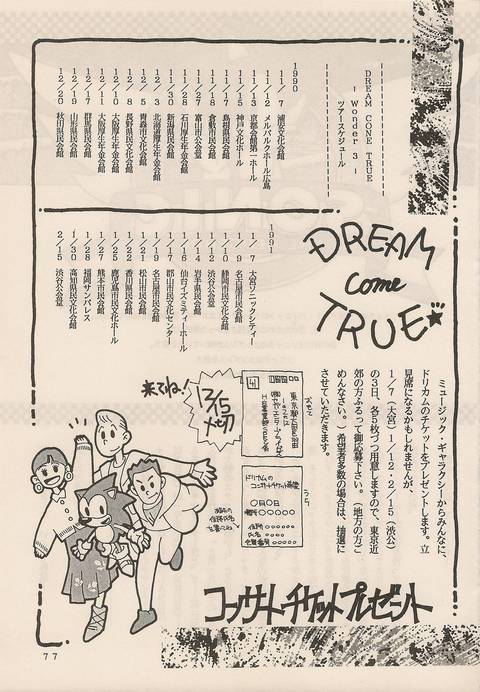 DREAM CONE TRUE
－Wonder 3－
ツアースケジュール
1990
11／7 浦安文化会館
11／12 メルパルクホール広島
11／13 京都会館第一ホール
11／15 神戸文化ホール
11／18 倉敷市民会館
11／17 島根県民会館
11／27 富山市公会堂
11／28 石川厚生年金会館
11／30 新潟県民会館
12／3 北海道厚生年金会館
12／5 青森市文化会館
12／8 長野県民文化会館
12／10 大阪厚生年金会館
12／11 大阪厚生年金会館
12／17 群馬県民会館
12／19 山形県民会館
12／20 秋田県民会館
1991
1／7 大宮ソニックシティー
1／9 名古屋市民会館
1／10 静岡市民文化会館
1／12 渋谷公会堂
1／14 岩手県民会館
1／16 仙台イズミティーホール
1／17 郡山市民文化センター
1／19 名古屋市民会館
1／21 松山市民会館
1／22 香川県民会館
1／25 鹿児島市民文化ホール
1／27 熊本市民会館
1／28 福岡サンパレス
2／1 高知県民文化会館
2／15 渋谷公会堂
DREAM
come
TRUE
ミュージック・ギャラクシーからみんなに、
ドリカムのチケットをプレゼントします。立
見席になるかもしれませんが、
1／7（大宮）1／12・2／15（渋公）
の3日、各5枚づつ用意しますので、東京近
郊の方ふるって御応募下さい。（地方の方ご
めんなさい。）希望者多数の場合は、抽選に
させていただきます。
おもて
うら
ドリカムの
コンサートチケット希望
○月○日
住所○○○
氏名○○○
電話番号○○○
12/15
〆切
来てね！
コンサートチケットプレゼント
77